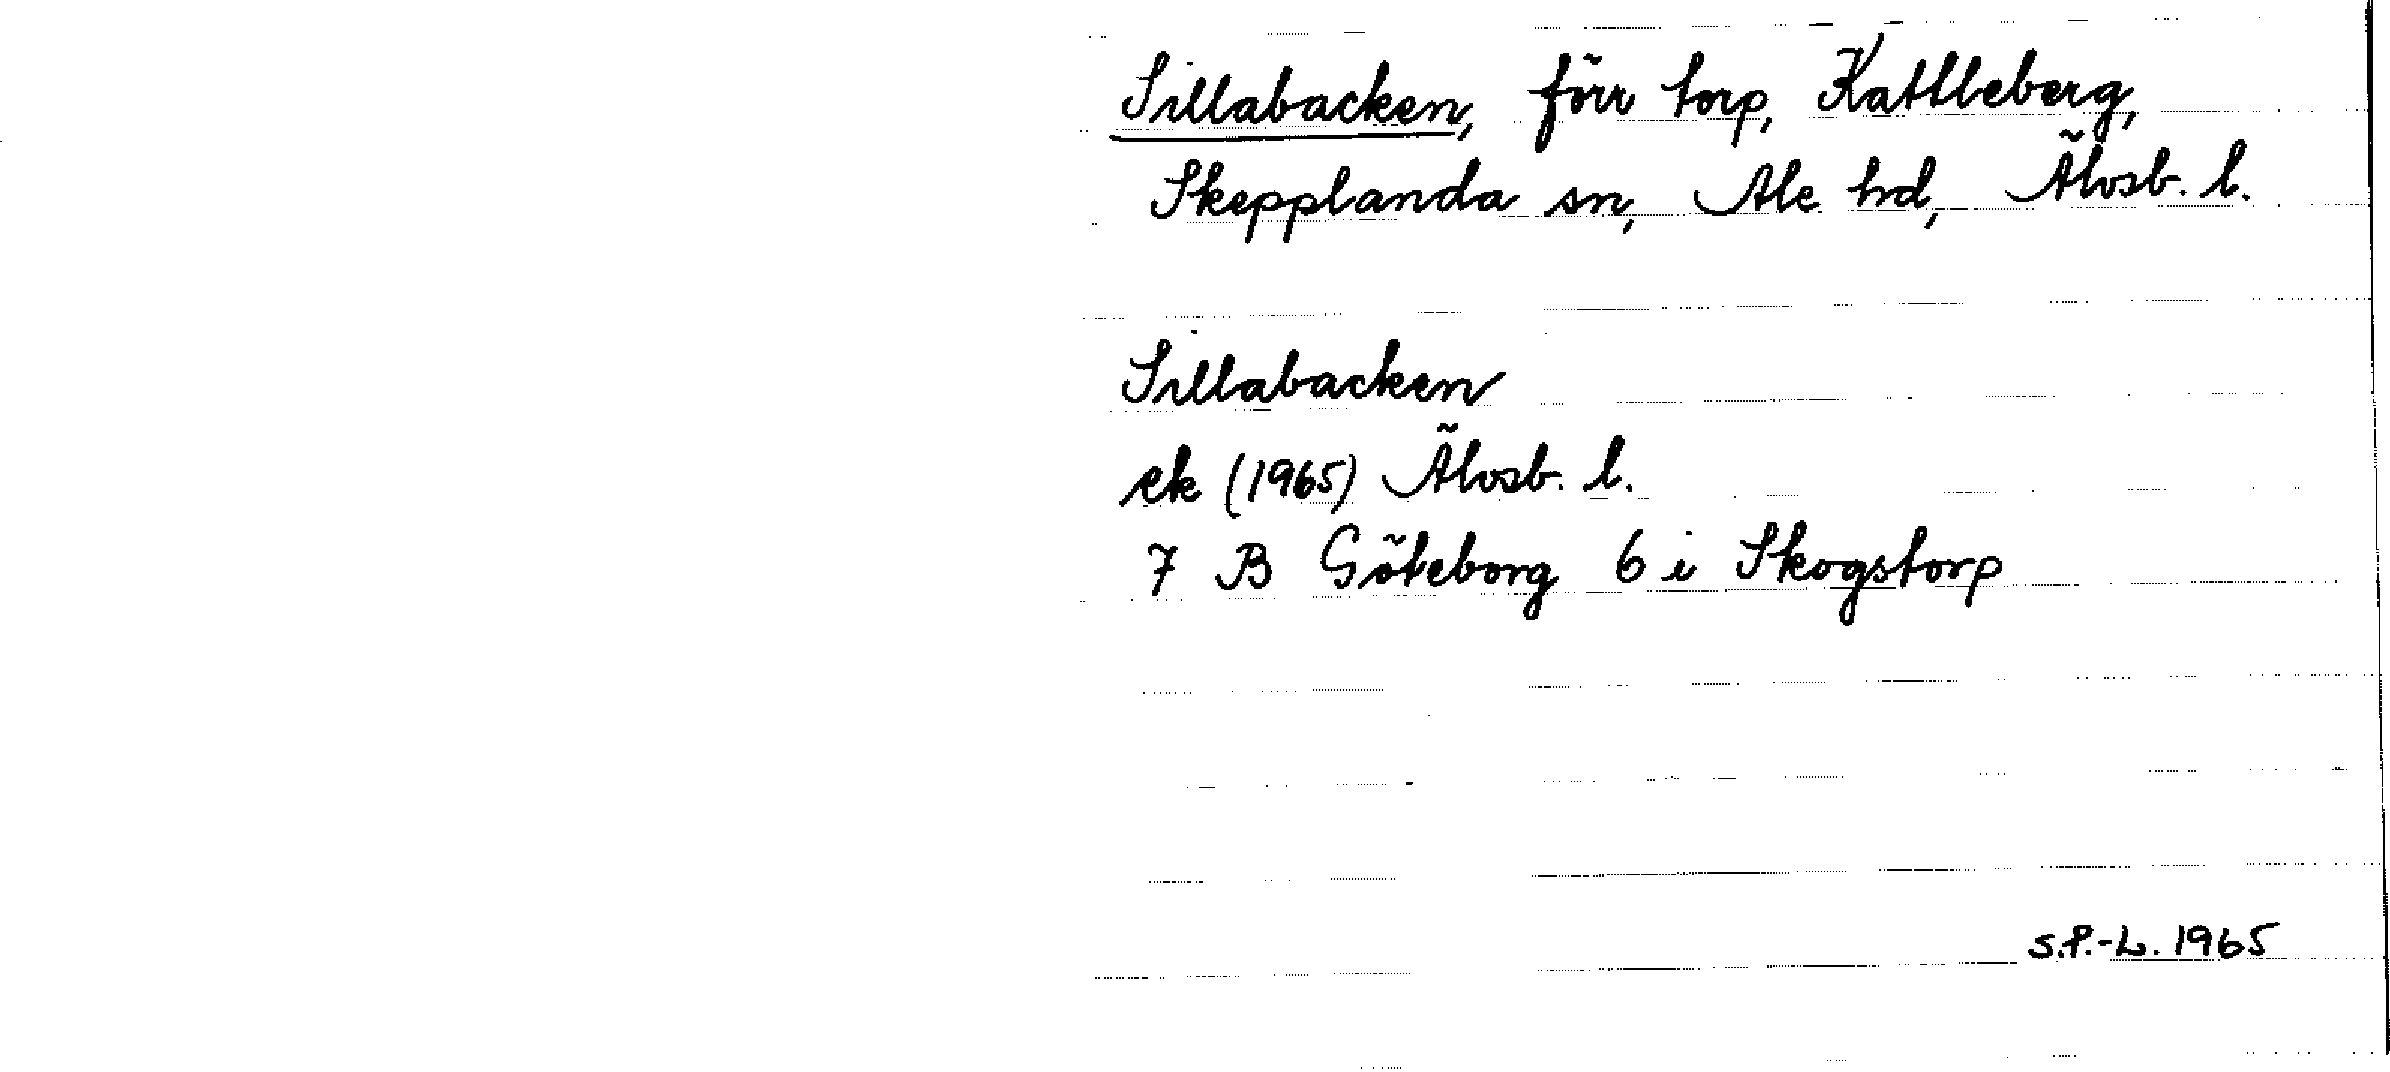 Sillabacken, förr torp, Kattleberg,
Skepplanda sn, Ale hd, Älvsb. l.
Sillabacken
ek (1965) Älvsb. l.
7 B Göteborg 6 i Skogstorp
S.P.-L. 1965